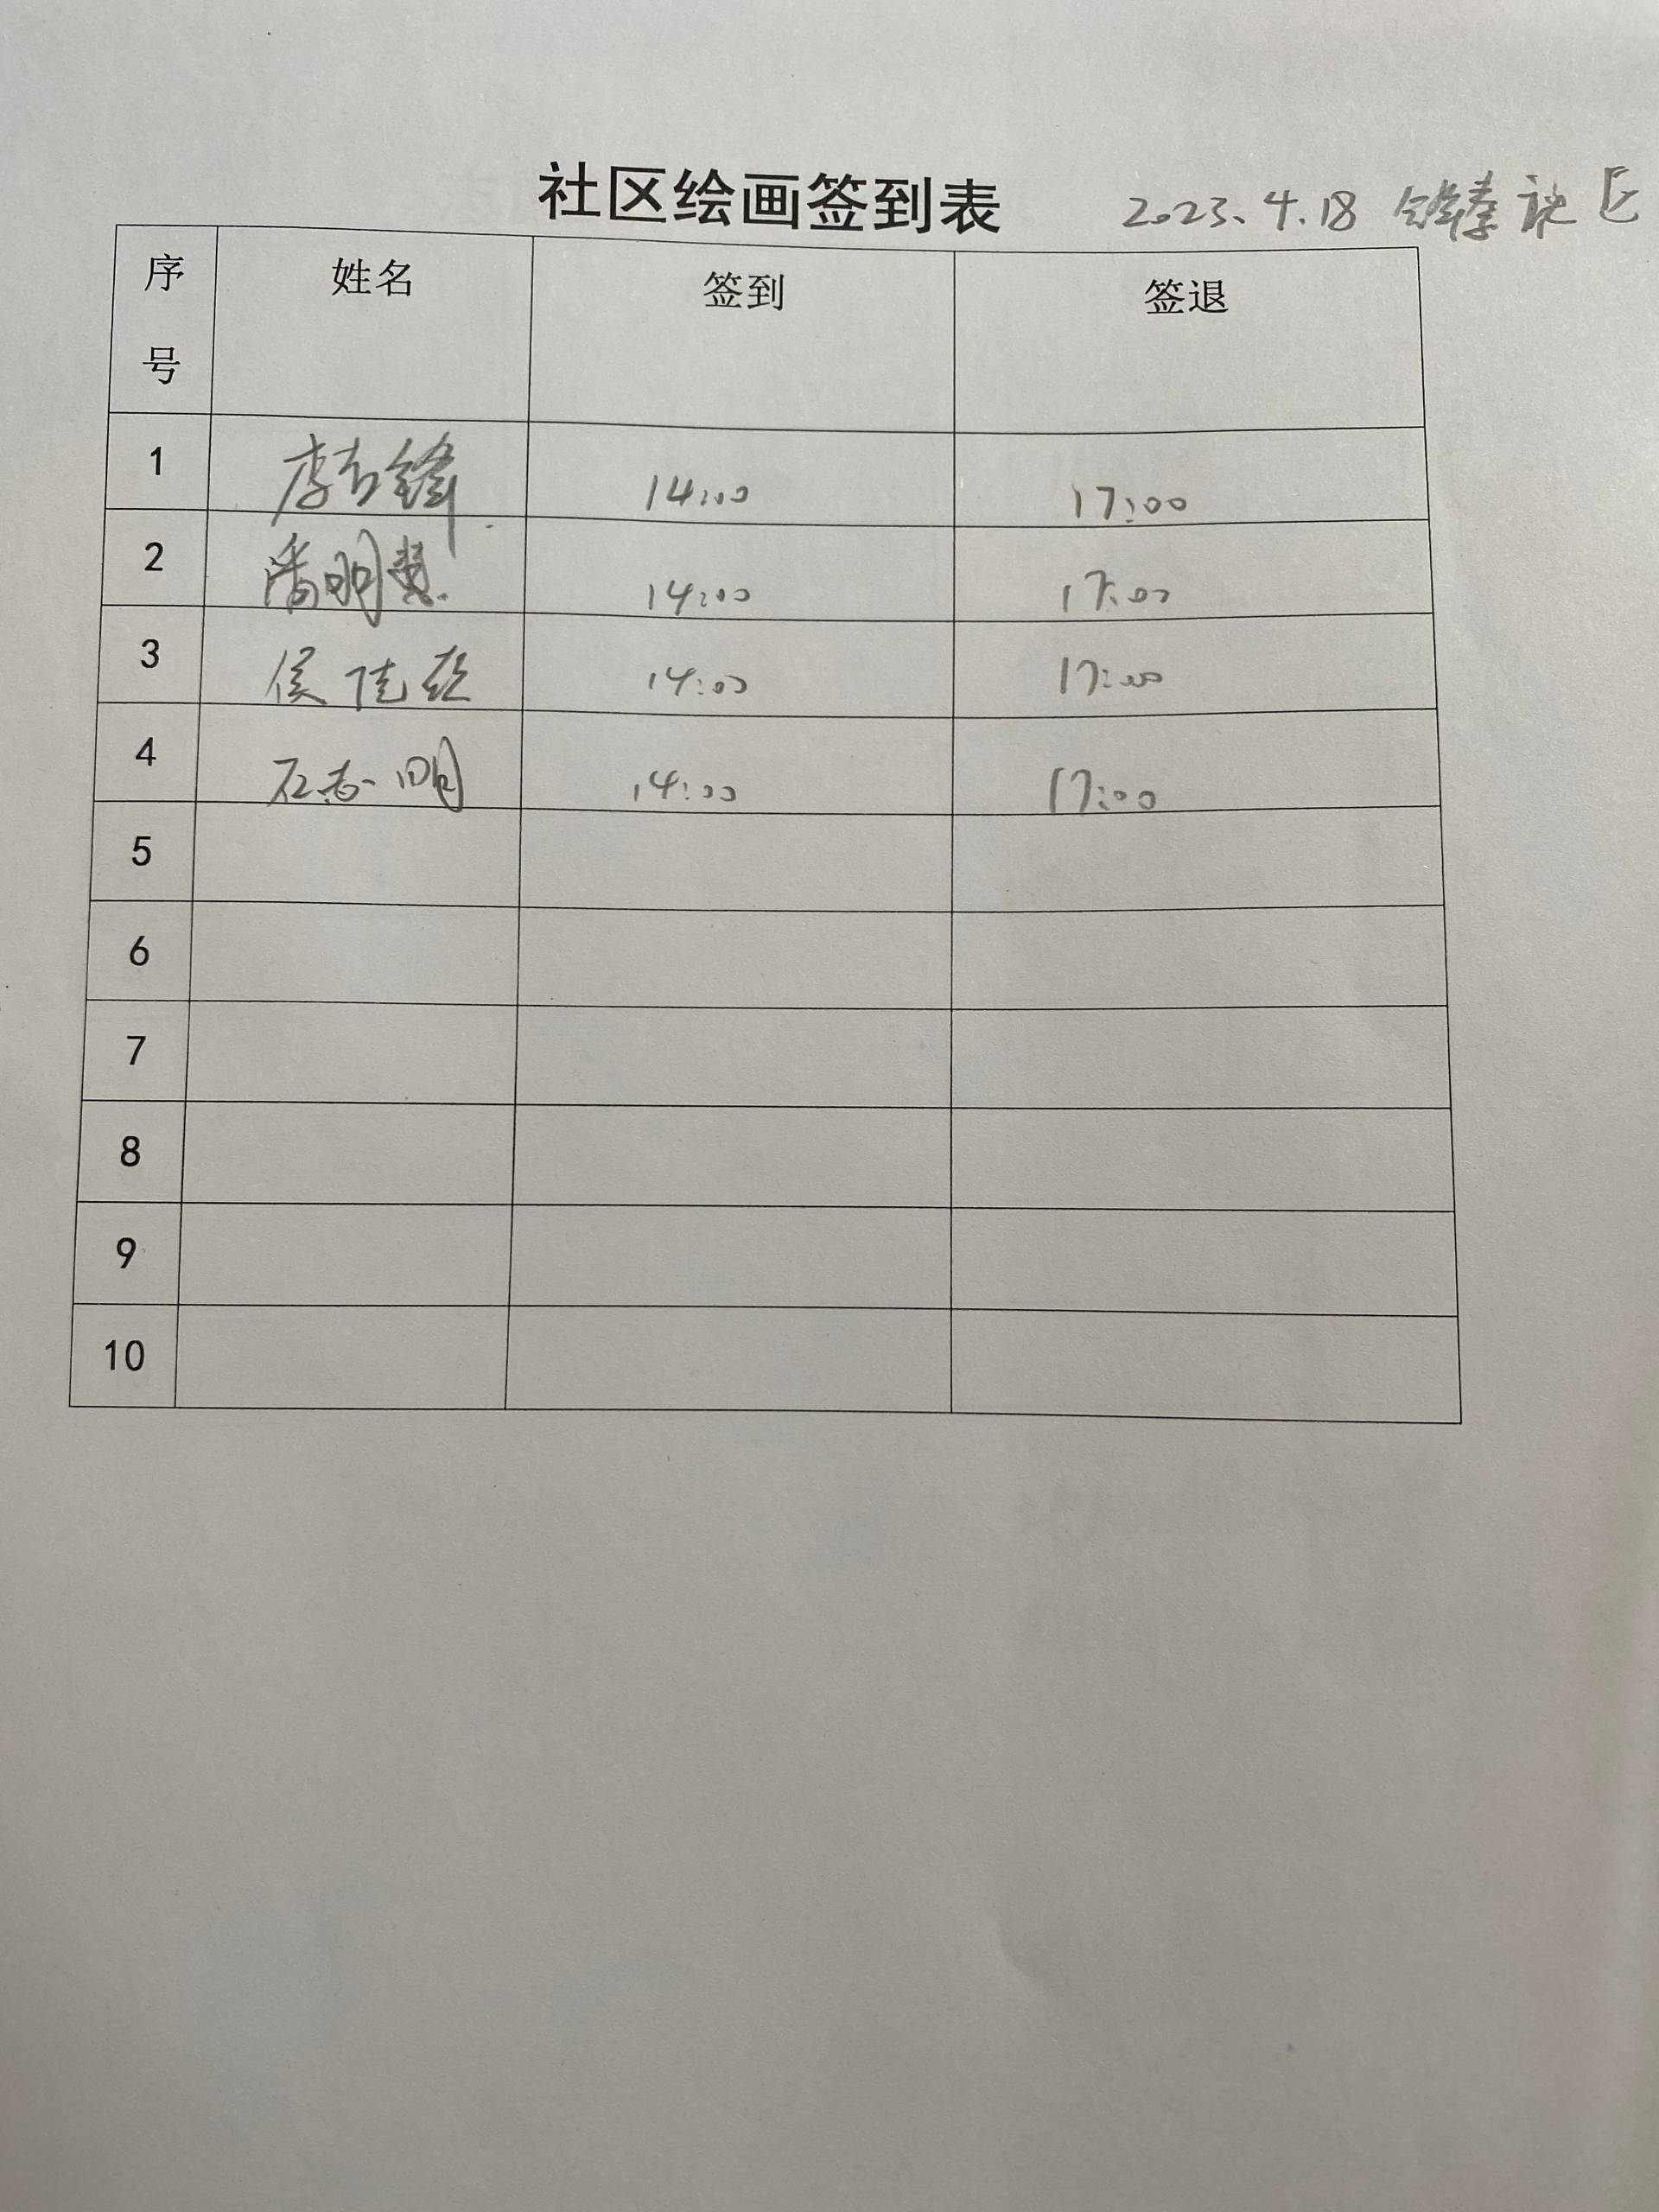 社区绘画签到表 2023.4.18 社区
序号 姓名 签到 签退
1 李 锋 14:00 17:00
2 潘明慧 14:00 17:00
3 侯佳 14:00 17:00
4 石志明 14:00 17:00
5
6
7
8
9
10